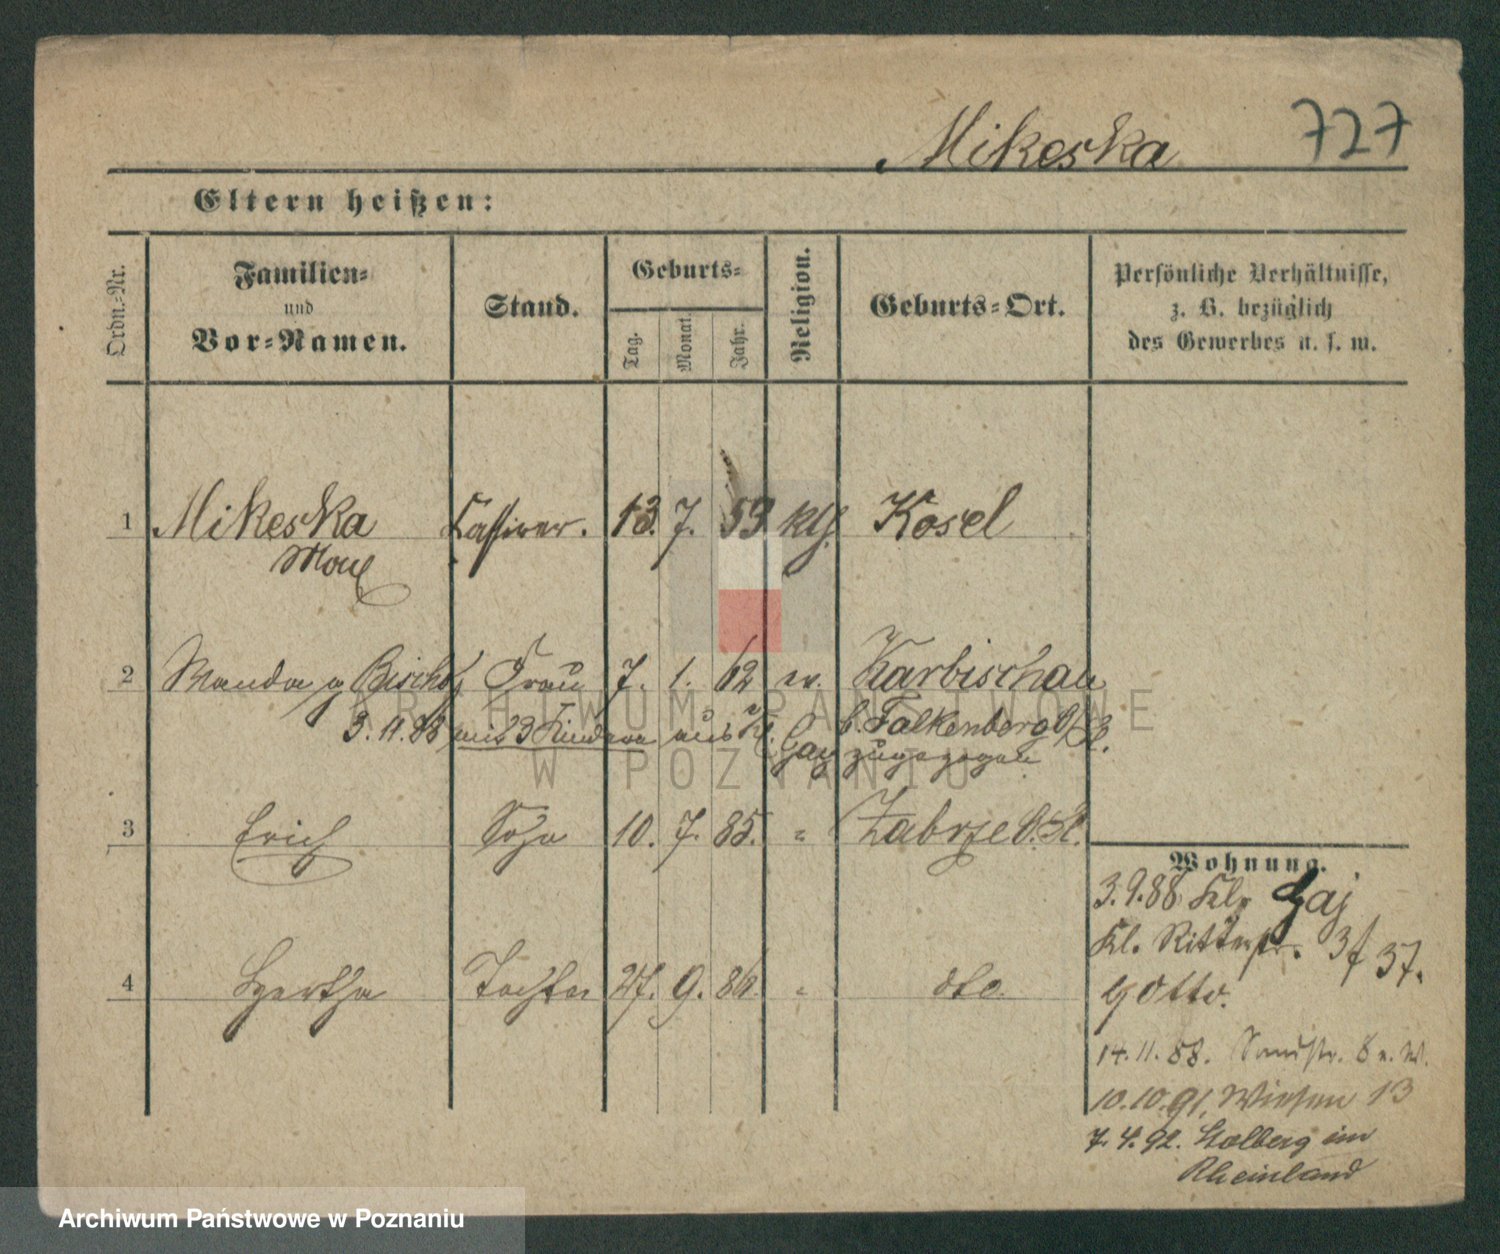 Mikeska 727
Eltern heißen:
Ordn.-Nr.
Familien-
und
Vor-Namen.
Stand.
Geburts-
Tag.
Monat.
Jahr.
Religion.
Geburts-Ort.
Persönliche Verhältnisse,
z. B. bezüglich
des Gewerbes u. s. w.
1 Mikeska Kassirer. 13. 7. 59 kth. Kosel
Max
2 Wanda g Bischof Frau 7. 1. 62 ev. Karbischau
b. Falkenberg O/S.
3.11.88 mit 3 Kindern aus Kl. Gay zugezogen
3 Erich Sohn 10. 7. 85. " Zabrze O.Sl.
4 Hertha Tochter 27. 9. 86. " dto.
Wohnung.
3.9.88 Kl. Gaj
Kl. Ritterstr. 37.
b/ Otto.
14.11.88. Sandstr. 8 n. W.
10.10.91. Wiesen 13
7.4.92. Stolberg im
Rheinland
ARCHIWUM PAŃSTWOWE
W POZNANIU
Archiwum Państwowe w Poznaniu